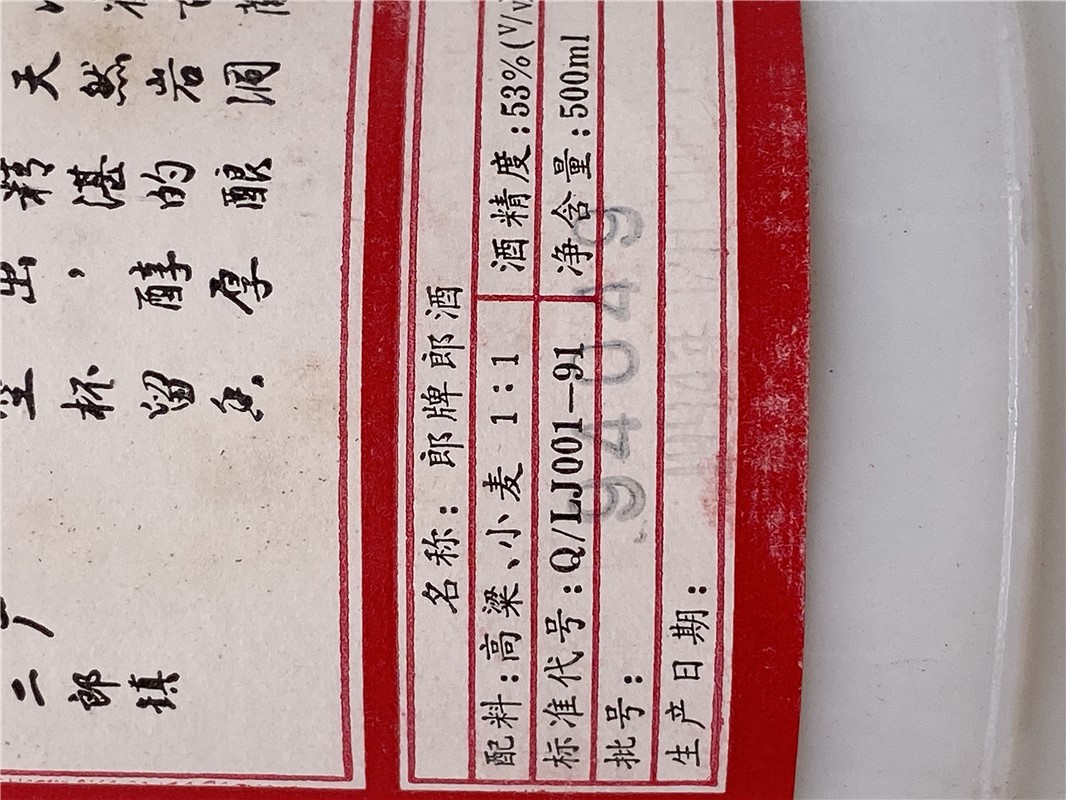 天然岩洞
精湛的酿
出，醇厚
空杯留香。
厂
二郎镇
名称：郎牌郎酒
配料：高粱、小麦 1：1
酒精度：53%(V/V
标准代号：Q/LJ001—91
净含量：500ml
批号：
94049
生产日期：